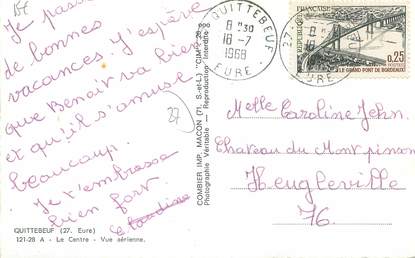 15f
Je passe
de bonnes
vacances. J'espère
que Benoit va bien
et qu'il s'amuse
beaucoup.
Je t'embrasse
bien fort.
Claudine
27
QUITTEBEUF (27. Eure)
121-28 A - Le Centre - Vue aérienne.
COMBIER IMP. MACON (71. S.-et-L.) "CIM"
Photographie Véritable - Reproduction interdite
QUITTEBEUF
8 H 30
18-7
1968
EURE
RÉPUBLIQUE FRANÇAISE
0,25
POSTES
LE GRAND PONT DE BORDEAUX
Melle Caroline John.
Chateau du Mont pinson
Heugleville
76.